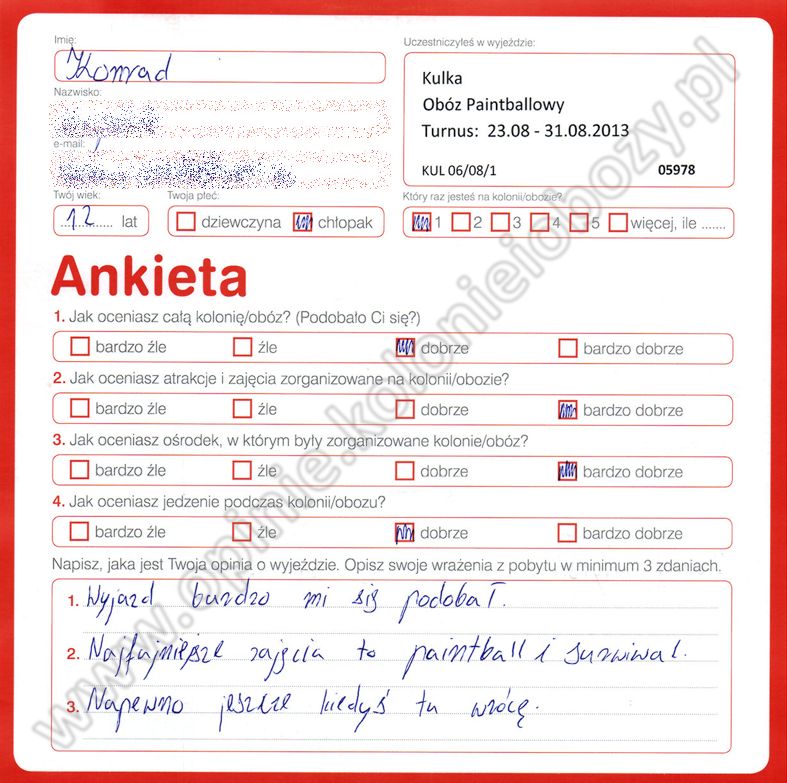 Imię:
Konrad
Uczestniczyłeś w wyjeździe:
Kulka
Obóz Paintballowy
Turnus: 23.08 - 31.08.2013
KUL 06/08/1 05978
Nazwisko:
e-mail:
Twój wiek:
12 lat
Twoja płeć:
dziewczyna chłopak
Który raz jesteś na kolonii/obozie?
1 2 3 4 5 więcej, ile .......
Ankieta
1. Jak oceniasz całą kolonię/obóz? (Podobało Ci się?)
bardzo źle źle dobrze bardzo dobrze
2. Jak oceniasz atrakcje i zajęcia zorganizowane na kolonii/obozie?
bardzo źle źle dobrze bardzo dobrze
3. Jak oceniasz ośrodek, w którym były zorganizowane kolonie/obóz?
bardzo źle źle dobrze bardzo dobrze
4. Jak oceniasz jedzenie podczas kolonii/obozu?
bardzo źle źle dobrze bardzo dobrze
Napisz, jaka jest Twoja opinia o wyjeździe. Opisz swoje wrażenia z pobytu w minimum 3 zdaniach.
1. Wyjazd bardzo mi się podobał.
2. Najfajniejsze zajęcia to paintball i surwiwal.
3. Napewno jeszcze kiedyś tu wrócę.
www.opinie.kolonieiobozy.pl